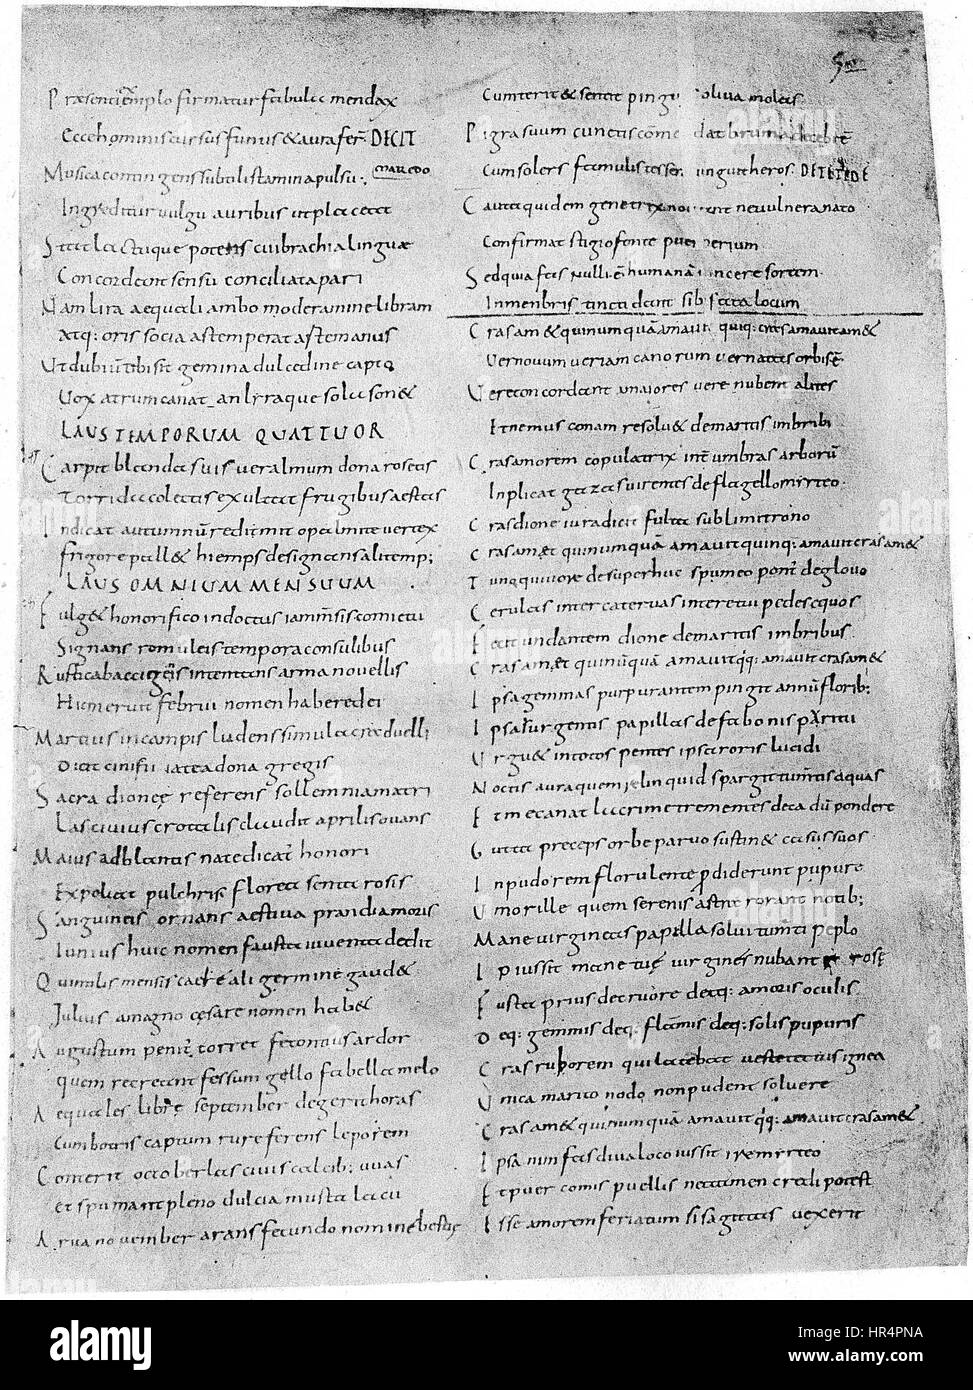 Praesenti exemplo firmatur fabula mendax
Ecce hominis cursus funus & aura fer DECIT
Musica contingens subtili stamina pulsu
Ingreditur vulgu auribus ut placeat
Stat tactuque potens cui brachia linguae
Concordant sensu conciliata pari
Nam lira aequali ambo moderamine libram
atq: oris socia as temperat as temanus
Ut dubiu tibi sit gemina dulcedine capto
Vox at rum canat an lyraque sola son&
LAUS TEMPORUM QUATTUOR
Carpit blanda suis ver almum dona rosetis
Torrida colectis exultat frugibus aestas
Indicat autumnu redimit opalmite vertex
frigore pall& hiemps designans alitemp;
LAUS OMNIUM MENSUUM
Fulg& honorifico indoctus iam mensis comictu
Signans romuleis tempora consulibus
Rustica bacci intentans arma novellis
Hic meruit februi nomen habere dei
Martius in campis ludens simulacra duelli
Dicat cinifii iatea dona gregis
Sacra dionę referens sollemnia matri
Lascivius crotalis cludit aprilis ovans
Maius adblantis nate dicat honori
Expoliat pulchris florea senta rosis
Sanguineis ornans aestiva prandia moris
Iunius huic nomen fausta iuventa dedit
Quintilis mensis caere ali germine gaud&
Julius a magno cesare nomen hab&
Augustum penit torret fetontius ardor
quem recreant fessum gello fabella melo
Aequales librę september degerit horas
cum botris capium rure ferens leporem
Conterit october lascivis calcib; uvas
et spumant pleno dulcia musta lacu
Arva november arans fecundo nomine bestę
Cum terit & sentit pingu olivia moles
Pigra suum cunctis com dat bruma decebrē
Cum solers famulis tesser unguit heros. DETEREDE
Cauta quidem genetrix no nt ne vulnera nato
Confirmat stigro fonte puer verium
Sed quia fas nulli ē humanā incere sortem
In menbris tincti dant sib fata locum
Cras am& qui nunquā amavit quiq: cras amavit am&
Ver novum ver iam canorum ver natus orbis ē
Vere concordant maiores vere nubent alites
Et nemus conam resolu& de martis imbribi
Cras amorem copulatrix int umbras arborū
Inplicat gaza suirentes de flagello mirteo
Cras dione iura dicit fulta sublimi trono
Cras amet qui nunquā amavit quinq: amavit cras am&
Tunc qui uore de superhuc spumeo pont de glovo
Cerulas inter catervas inter et uipedes equos
Fecit undantem dione de martis imbribus
Cras amet qui nunquā amavit qq: amavit cras am&
Ipsa gemmas purpurantem pingit annū florib;
Ipsa surgentis papillas de faboni spartu
Urgu& in totos pentes ipsa roris lucidi
Noctis aura quem relinquid spargit umentis aquas
Et mecanat lacrime trementes decadū pondere
Gutta preceps orbe parvo sustin& casus suos
In pudorem florulente pdiderunt pupure
Umor ille quem serenis astra rorant notib;
Mane virgineas papillas solvit umti peplo
Ipiussit mane tuę virgines nubant rosę
Fusta prius decruore deq: amoris oculis
Deq: gemmis deq: flāmis deq: solis pupuris
Cras ruporem qui latebat veste tatius ignea
Unica marito nodo non pudent solvere
Cras am& qui nunquā amavit qq: amavit cras am&
Ipsa nimfas diva loco iussit ire mirteo
Et puer comis puellis nec tamen credi potest
Esse amorem feriatum si sagittas vexerit
alamy
Image ID: HR4PNA
www.alamy.com